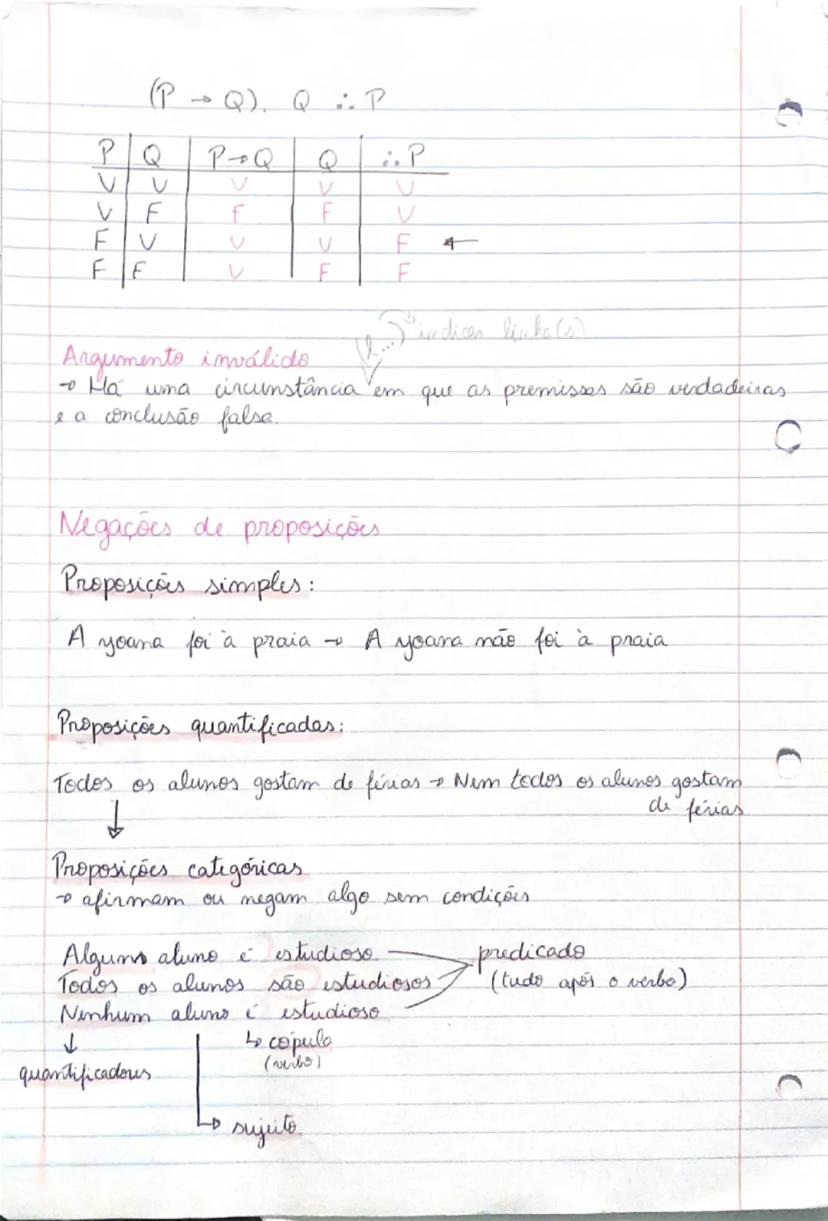 (P → Q). Q ∴ P
P Q P→Q Q ∴P
V V V V V
V F F F V
F V V V F ←
F F V F F
(l...) indicar linha(s)
Argumento inválido
→ Há uma circunstância em que as premissas são verdadeiras
e a conclusão falsa.
Negações de proposições
Proposições simples:
A yoana foi à praia → A yoana não foi à praia
Proposições quantificadas:
Todos os alunos gostam de férias → Nem todos os alunos gostam
de férias
Proposições categóricas
→ afirmam ou negam algo sem condições
Algum aluno é estudioso predicado
Todos os alunos são estudiosos (tudo após o verbo)
Nenhum aluno é estudioso
↓ ↳ cópula
quantificadores (verbo)
↳ sujeito